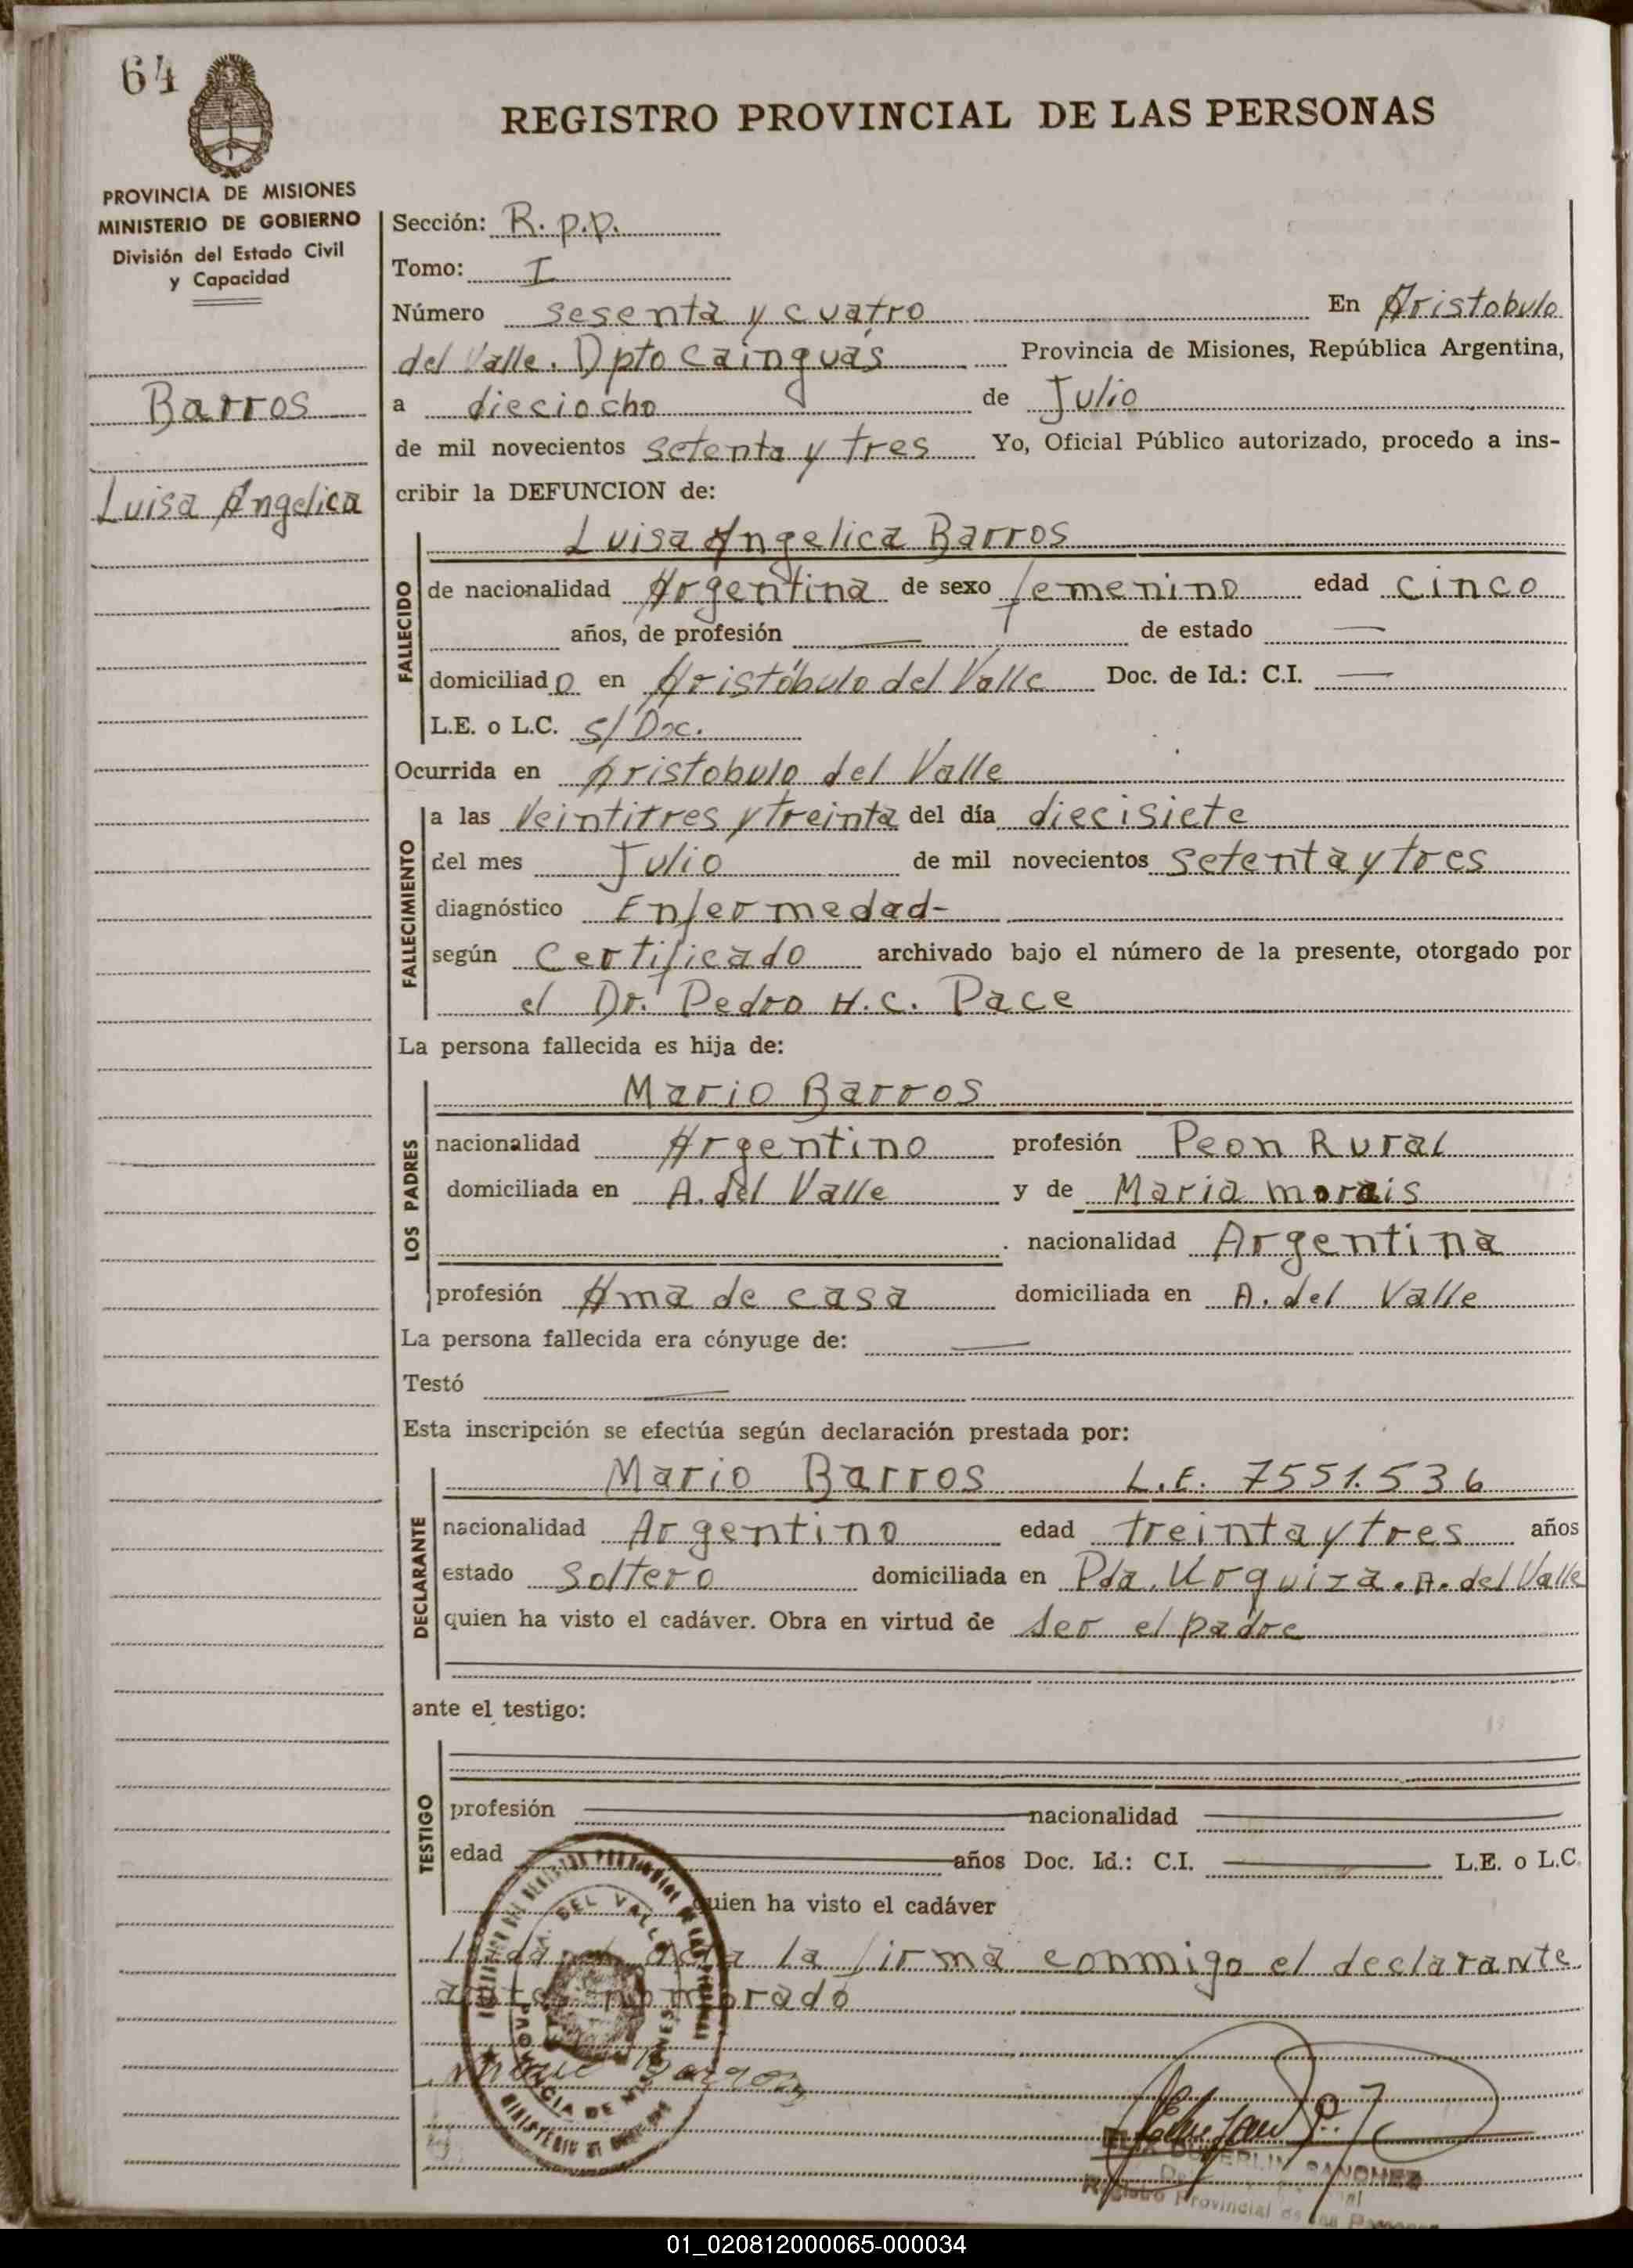 64
REGISTRO PROVINCIAL DE LAS PERSONAS
PROVINCIA DE MISIONES
MINISTERIO DE GOBIERNO
División del Estado Civil
y Capacidad
Barros
Luisa Angelica
Sección: R. p.p.
Tomo: I
Número sesenta y cuatro En Aristobulo
del Valle. Dpto Cainguás Provincia de Misiones, República Argentina,
a dieciocho de Julio
de mil novecientos setenta y tres Yo, Oficial Público autorizado, procedo a ins-
cribir la DEFUNCION de:
FALLECIDO
Luisa Angelica Barros
de nacionalidad Argentina de sexo femenino edad cinco
años, de profesión — de estado —
domiciliado en Aristóbulo del Valle Doc. de Id.: C.I. —
L.E. o L.C. s/ Doc.
Ocurrida en Aristobulo del Valle
FALLECIMIENTO
a las Veintitres y treinta del día diecisiete
del mes Julio de mil novecientos setenta y tres
diagnóstico Enfermedad-
según Certificado archivado bajo el número de la presente, otorgado por
el Dr. Pedro H.C. Pace
La persona fallecida es hija de:
LOS PADRES
Mario Barros
nacionalidad Argentino profesión Peon Rural
domiciliada en A. del Valle y de Maria morais
nacionalidad Argentina
profesión Ama de casa domiciliada en A. del Valle
La persona fallecida era cónyuge de: —
Testó —
Esta inscripción se efectúa según declaración prestada por:
DECLARANTE
Mario Barros L.E. 7551.536
nacionalidad Argentino edad treinta y tres años
estado Soltero domiciliada en Pda. Urquiza. A. del Valle
quien ha visto el cadáver. Obra en virtud de ser el padre
ante el testigo:
TESTIGO
profesión nacionalidad
edad años Doc. Id.: C.I. L.E. o L.C.
quien ha visto el cadáver
acta la firma conmigo el declarante
antes nombrado
DEL VALLE
PROVINCIA DE MISIONES
MINISTERIO DE
SANCHEZ
Registro Provincial de las Personas
01_020812000065-000034